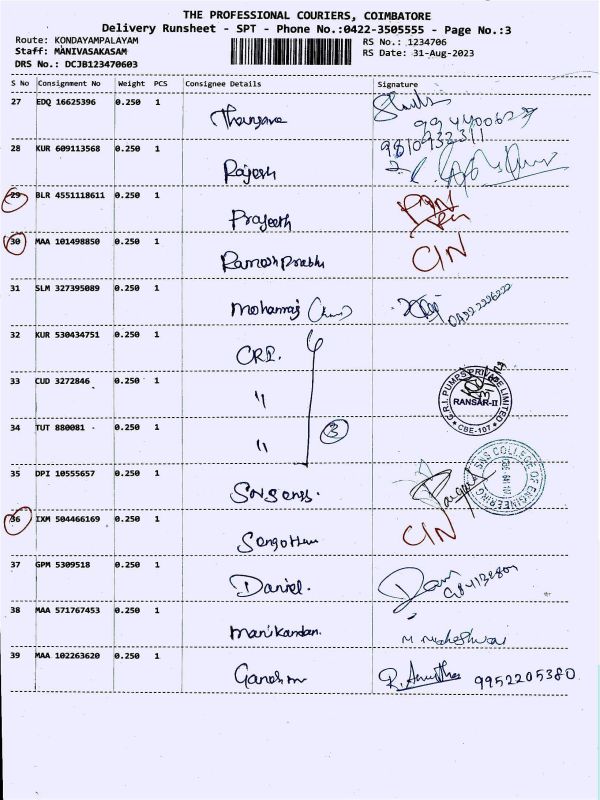 THE PROFESSIONAL COURIERS, COIMBATORE
Delivery Runsheet - SPT - Phone No.:0422-3505555 - Page No.:3
Route: KONDAYAMPALAYAM
RS No.: 1234706
Staff: MANIVASAKASAM
RS Date: 31-Aug-2023
DRS No.: DCJB123470603
S No Consignment No Weight PCS Consignee Details Signature
27 EDQ 16625396 0.250 1
9944400627
9810933311
28 KUR 609113568 0.250 1 Rajesh
29 BLR 4551118611 0.250 1 Prajeeth
30 MAA 101498850 0.250 1 Ramesh Prabhu CIN
31 SLM 327395089 0.250 1 Mohanraj
32 KUR 530434751 0.250 1 CRI.
33 CUD 3272846 0.250 1 "
C.R.I. PUMPS PRIVATE LIMITED
RANSAR-II
CBE-107
34 TUT 880081 0.250 1 " 3
35 DPI 10555657 0.250 1
SNS COLLEGE OF ENGINEERING
36 IXM 504466169 0.250 1 CIN
37 GPM 5309518 0.250 1 Daniel.
38 MAA 571767453 0.250 1 Manikandan.
39 MAA 102263620 0.250 1 Ganesh 9952205380